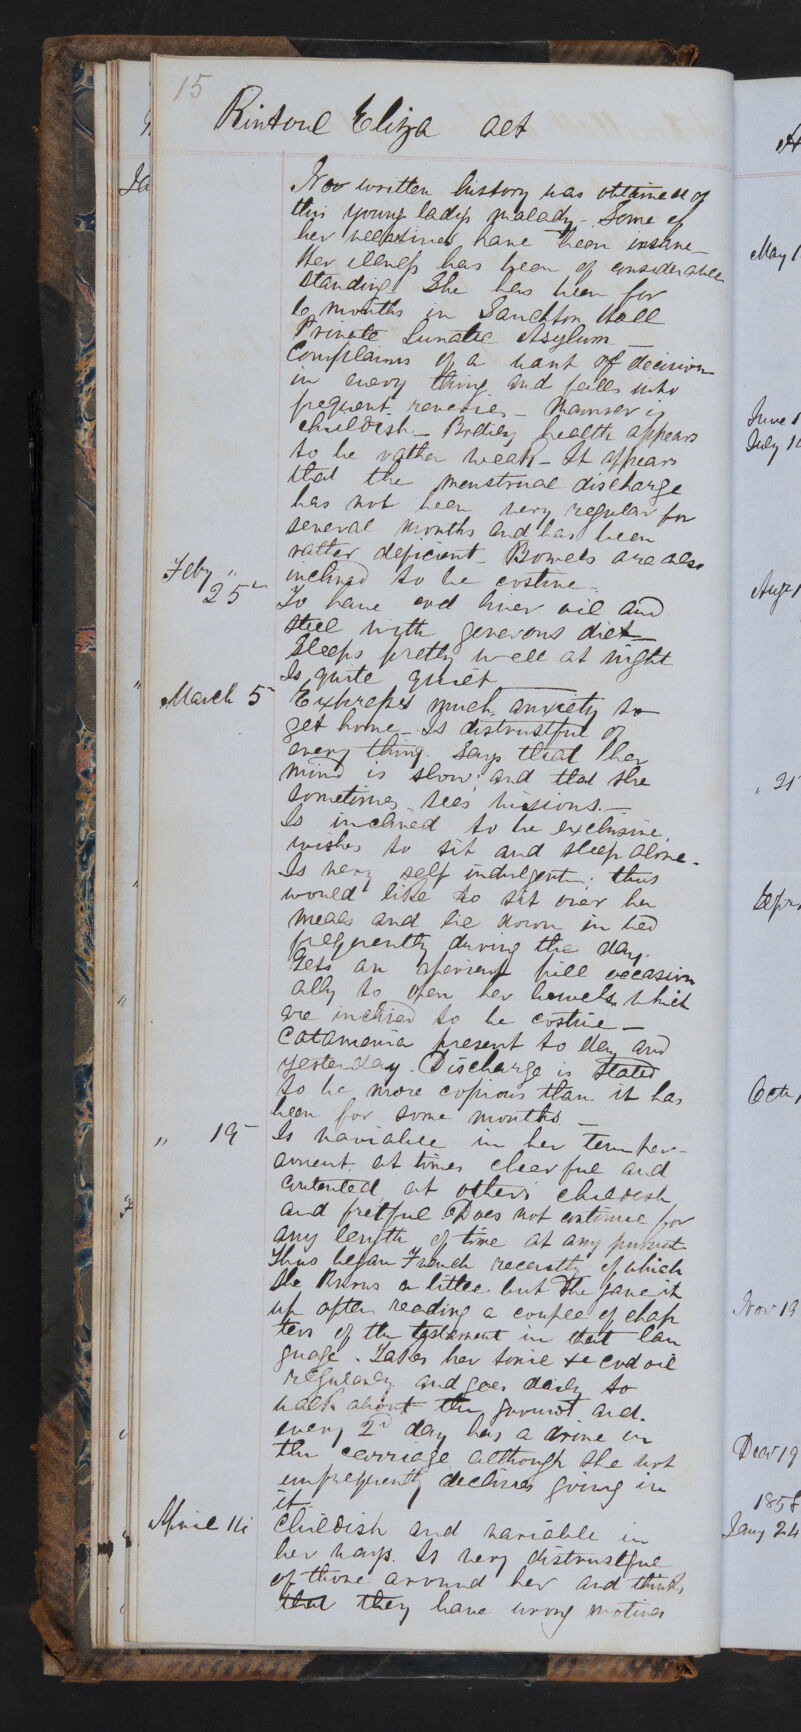 15
Rintoul Eliza aet
No written history was obtained of
this young lady's malady - Some of
her relatives have been insane -
Her illness has been of considerable
standing. She has been for
6 months in Saughton Hall
Private Lunatic Asylum -
Complains of a want of decision
in every thing and falls into
frequent reveries - Manner is
childish - Bodily health appears
to be rather weak - It appears
that the menstrual discharge
has not been very regular for
several months and has been
rather deficient - Bowels are also
inclined to be costive -
Feby " 25 To have cod liver oil and
steel with generous diet -
Sleeps pretty well at night
Is quite quiet
" March 5 Expresses much anxiety to
get home - Is distrustful of
every thing. Says that her
mind is slow; and that she
sometimes sees visions. -
Is inclined to be exclusive,
wishes to sit and sleep alone -
Is very self indulgent; thus
would like to sit over her
meals and lie down in bed
frequently during the day.
Gets an aperient pill occasion
ally to open her bowels which
are inclined to be costive -
Catamenia present to day and
yesterday. Discharge is stated
to be more copious than it has
been for some months -
" 19 Is variable in her temper-
ament. at times cheerful and
contented, at others childish
and fretful. Does not continue for
any length of time at any pursuit
Thus began French recently of which
she knows a little but she gave it
up after reading a couple of chap
ters of the testament in that lan
guage. Takes her tonic & cod oil
regularly and goes daily to
walk about the ground and.
every 2d day has a drive in
the carriage although she not
unfrequently declines going in
it.
April 14 Childish and variable in
her ways. Is very distrustful
of those around her and thinks
that they have wrong motives
May 1
June 1
July 1
Aug 1
" 21
Sepr
Octr 1
Nov 13
Decr 19
1858
Jany 24